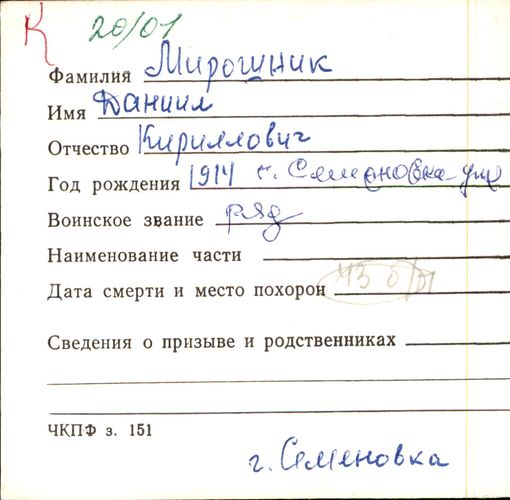 К 20/01
Фамилия Мирошник
Имя Даниил
Отчество Кириллович
Год рождения 1914 г. Семеновка
Воинское звание ряд
Наименование части
Дата смерти и место похорон
Сведения о призыве и родственниках
ЧКПФ з. 151
г. Семеновка